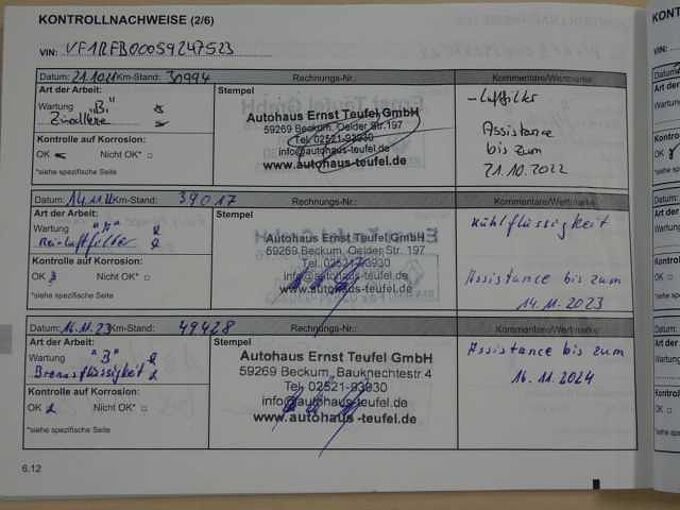 KONTROLLNACHWEISE (2/6)
VIN: VF1RFB00059247523
Datum: 21.10.21 Km-Stand: 30994 Rechnungs-Nr.: Kommentare/Wertmarke
Art der Arbeit:
Wartung "B"
Kontrolle auf Korrosion:
OK Nicht OK* □
*siehe spezifische Seite
Stempel
Autohaus Ernst Teufel GmbH
59269 Beckum, Oelder Str. 197
Tel. 02521-93930
info@autohaus-teufel.de
www.autohaus-teufel.de
- Luftfilter
Assistance
bis zum
21.10.2022
Datum: Km-Stand: 39017 Rechnungs-Nr.: Kommentare/Wertmarke
Art der Arbeit:
Wartung "A"
Reinluftfilter
Kontrolle auf Korrosion:
OK Nicht OK* □
*siehe spezifische Seite
Stempel
Autohaus Ernst Teufel GmbH
59269 Beckum, Oelder Str. 197
Tel. 02521-93930
info@autohaus-teufel.de
www.autohaus-teufel.de
Kühlflüssigkeit
Assistance bis zum
14.11.2023
Datum: 16.11.23 Km-Stand: 49428 Rechnungs-Nr.: Kommentare/Wertmarke
Art der Arbeit:
Wartung "B"
Bremsflüssigkeit
Kontrolle auf Korrosion:
OK Nicht OK* □
*siehe spezifische Seite
Stempel
Autohaus Ernst Teufel GmbH
59269 Beckum, Bauknechtestr 4
Tel. 02521-93930
info@autohaus-teufel.de
www.autohaus-teufel.de
Assistance bis zum
16.11.2024
6.12